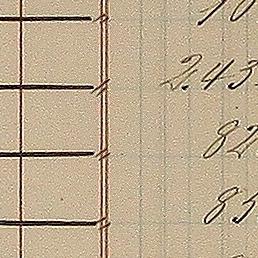 10
2.43.
82
85